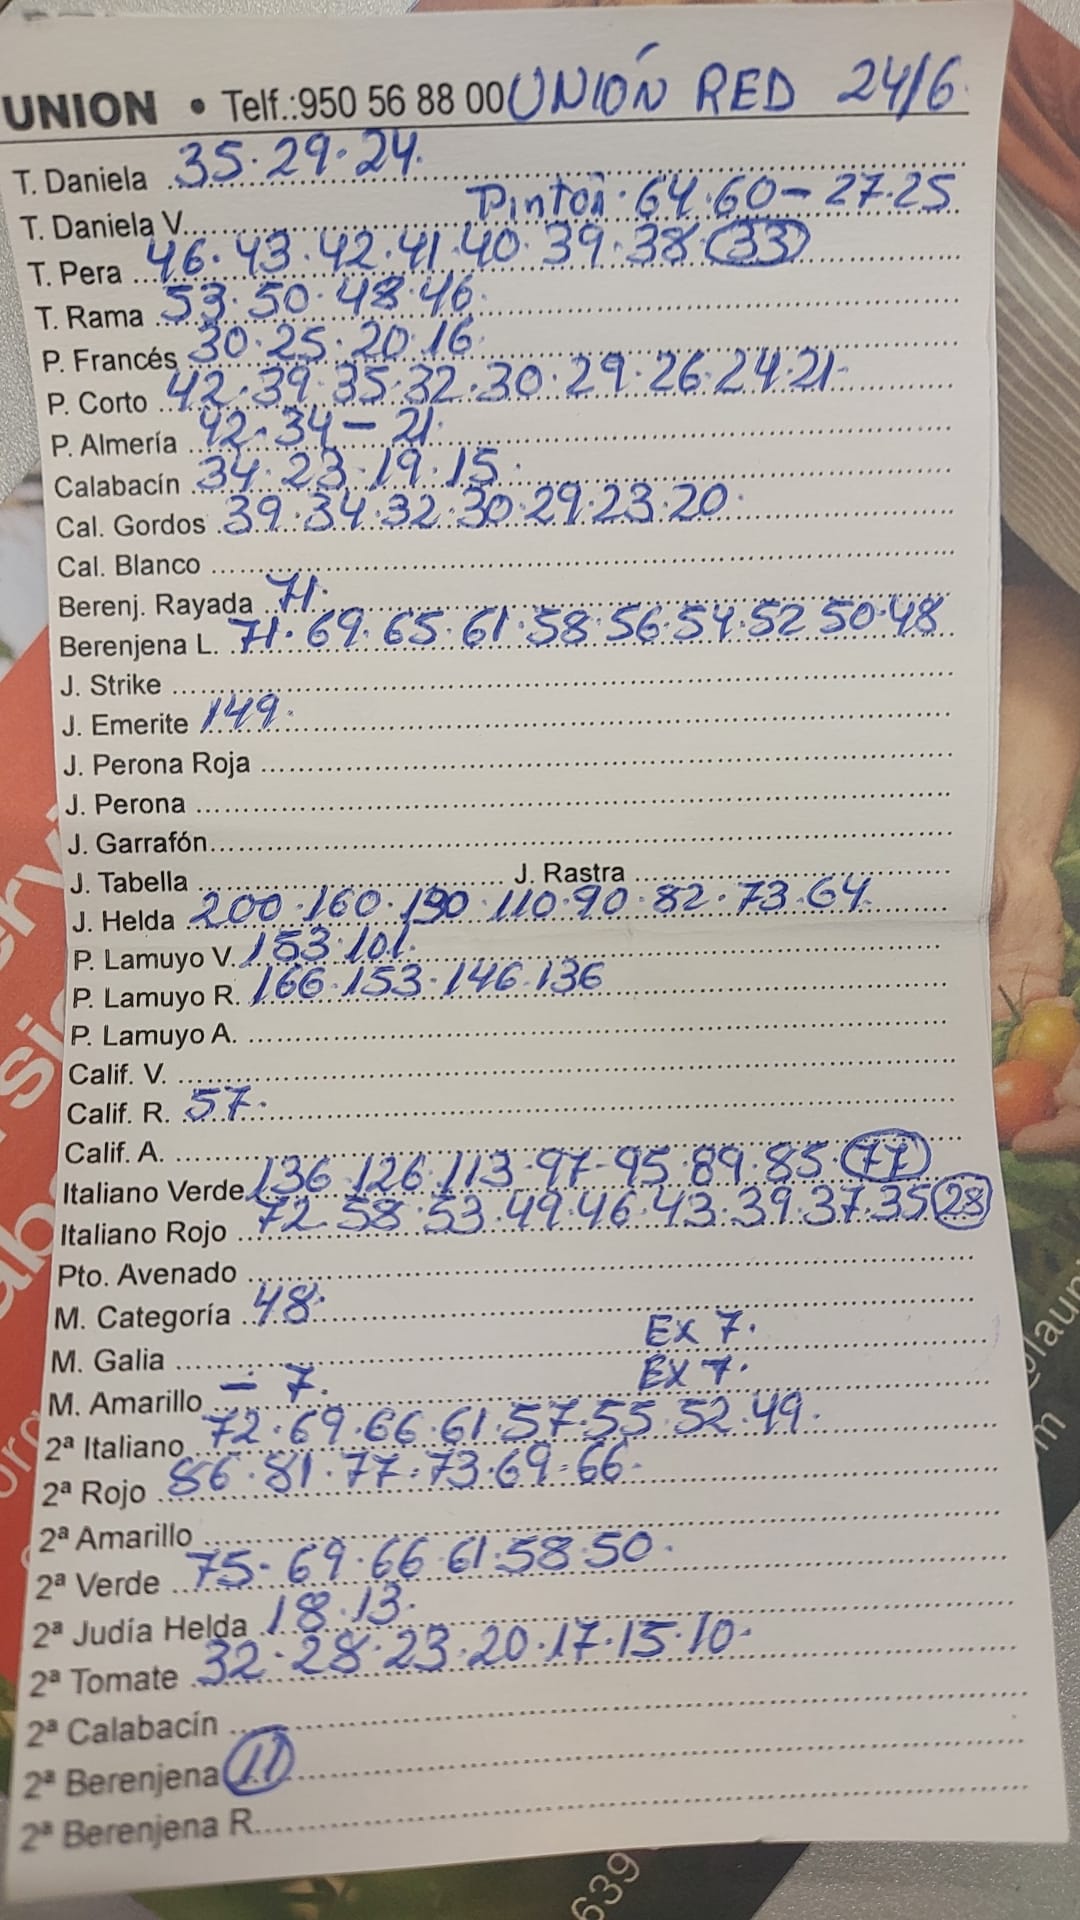 UNION • Telf.:950 56 88 00 UNIÓN RED 24/6.
T. Daniela 35.29.24.
T. Daniela V. Pinton.64.60-27.25
T. Pera 46.43.42.41.40.39.38 33
T. Rama 53.50.48.46.
P. Francés 30.25.20.16.
P. Corto 42.39.35.32.30.29.26.24.21-
P. Almería 42.34-21.
Calabacín 34.23.19.15.
Cal. Gordos 39.34.32.30.29.23.20.
Cal. Blanco
Berenj. Rayada 71.
Berenjena L. 71.69.65.61.58.56.54.52 50.48
J. Strike
J. Emerite 149.
J. Perona Roja
J. Perona
J. Garrafón
J. Tabella J. Rastra
J. Helda 200.160.130.110.90.82.73.64.
P. Lamuyo V. 153.101.
P. Lamuyo R. 166.153.146.136
P. Lamuyo A.
Calif. V.
Calif. R. 57.
Calif. A.
Italiano Verde 136.126.113.97-95.89.85.77
Italiano Rojo 72.58.53.49.46.43.39.37.35 28
Pto. Avenado
M. Categoría 48.
M. Galia Ex 7.
M. Amarillo - 7. Ex 7.
2ª Italiano 72.69.66.61.57.55.52.49.
2ª Rojo 86.81.77.73.69.66.
2ª Amarillo
2ª Verde 75.69.66.61.58.50.
2ª Judía Helda 18.13.
2ª Tomate 32.28.23.20.17.15.10.
2ª Calabacín
2ª Berenjena 11
2ª Berenjena R.
639